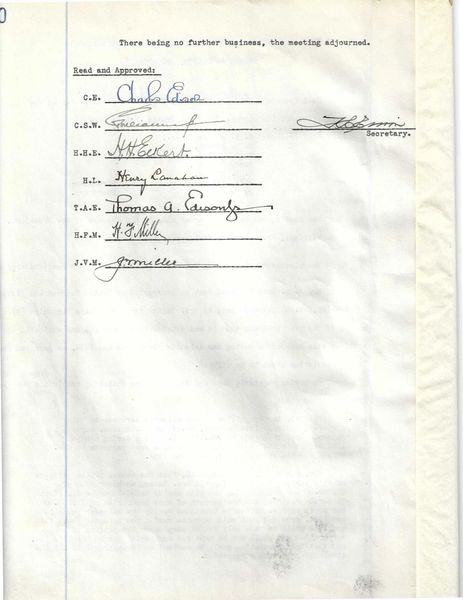 0
There being no further business, the meeting adjourned.
Read and Approved:
C.E. Charles Edison
C.S.W.
Secretary.
H.H.E. H.H. Eckert.
H.L. Henry Lanahan
T.A.E. Thomas A. Edison Jr
H.F.M. H.F. Miller
J.V.M. J.V. Miller